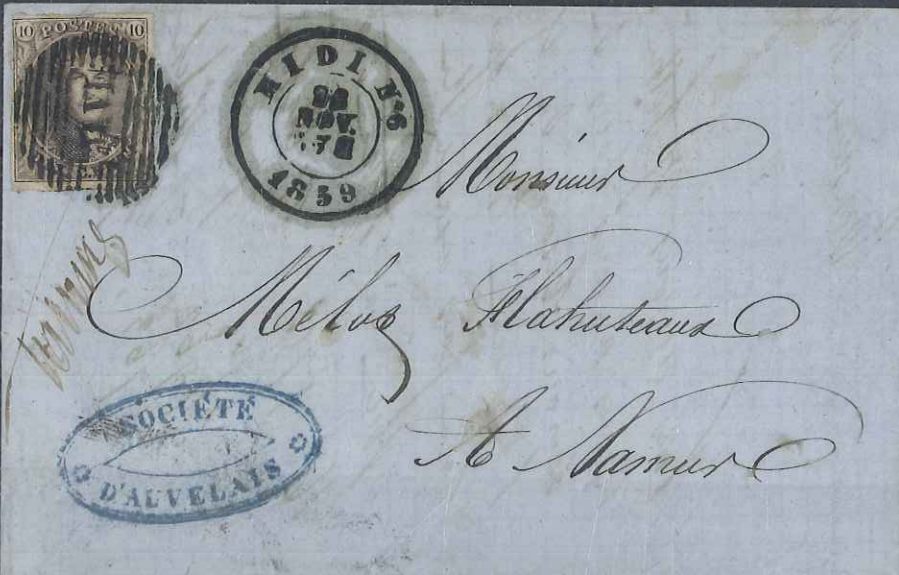 10 POSTES 10
MIDI N°6
22
NOV.
1859
Monsieur
Mélot Hahuteaux
A Namur
SOCIÉTÉ
D'AUVELAIS